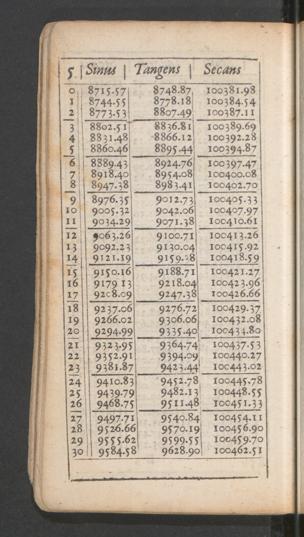 5 | Sinus | Tangens | Secans
0 8715.57 8748.87 100381.98
1 8744.55 8778.18 100384.54
2 8773.53 8807.49 100387.11
3 8802.51 8836.81 100389.69
4 8831.48 8866.12 100392.28
5 8860.46 8895.44 100394.87
6 8889.43 8924.76 100397.47
7 8918.40 8954.08 100400.08
8 8947.38 8983.41 100402.70
9 8976.35 9012.73 100405.33
10 9005.32 9042.06 100407.97
11 9034.29 9071.38 100410.61
12 9063.26 9100.71 100413.26
13 9092.23 9130.04 100415.92
14 9121.19 9159.38 100418.59
15 9150.16 9188.71 100421.27
16 9179 13 9218.04 100423.96
17 9208.09 9247.38 100426.66
18 9237.06 9276.72 100429.37
19 9266.02 9306.06 100432.08
20 9294.99 9335.40 100434.80
21 9323.95 9364.74 100437.53
22 9352.91 9394.09 100440.27
23 9381.87 9423.44 100443.02
24 9410.83 9452.78 100445.78
25 9439.79 9482.13 100448.55
26 9468.75 9511.48 100451.33
27 9497.71 9540.84 100454.11
28 9526.66 9570.19 100456.90
29 9555.62 9599.55 100459.70
30 9584.58 9628.90 100462.51